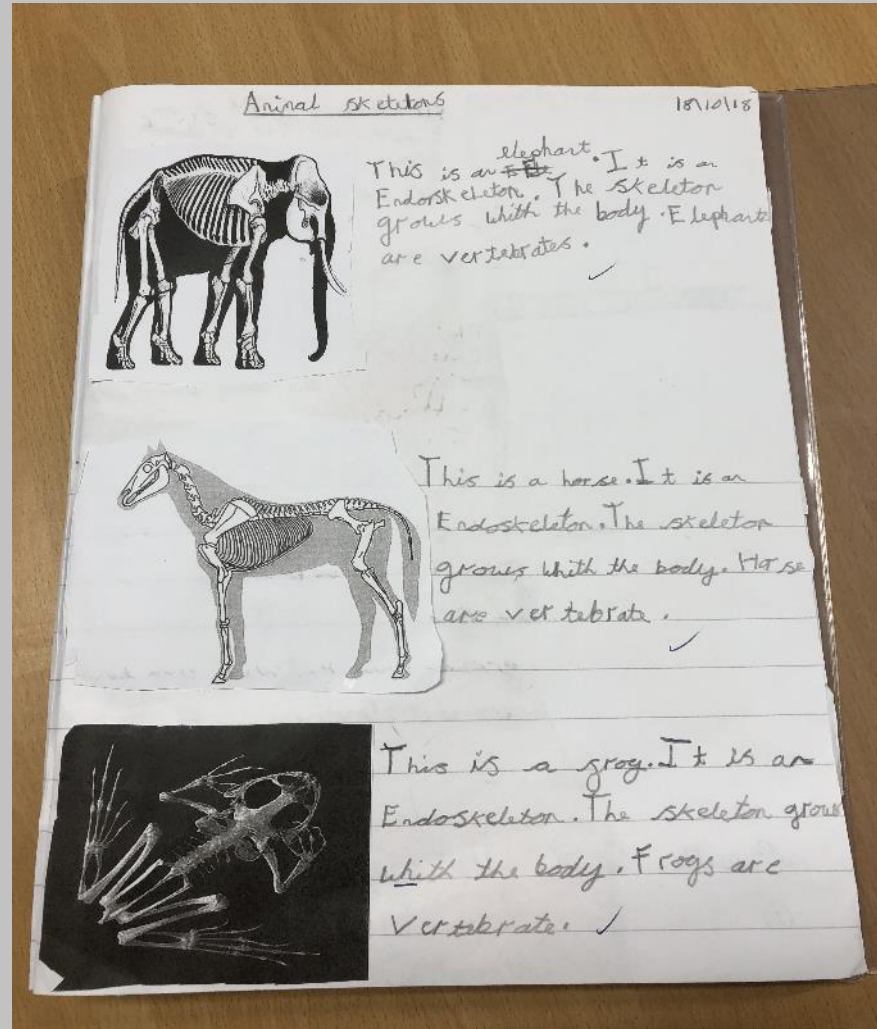 Animal skeletons
18\10\18
elephant
This is an . It is an
Endorskeleton. The skeleton
grows whith the body. Elephants
are vertebrates.
This is a horse. It is an
Endoskeleton. The skeleton
grows whith the body. Horse
are vertebrate.
This is a grog. It is an
Endoskeleton. The skeleton grows
whith the body. Frogs are
vertebrate.